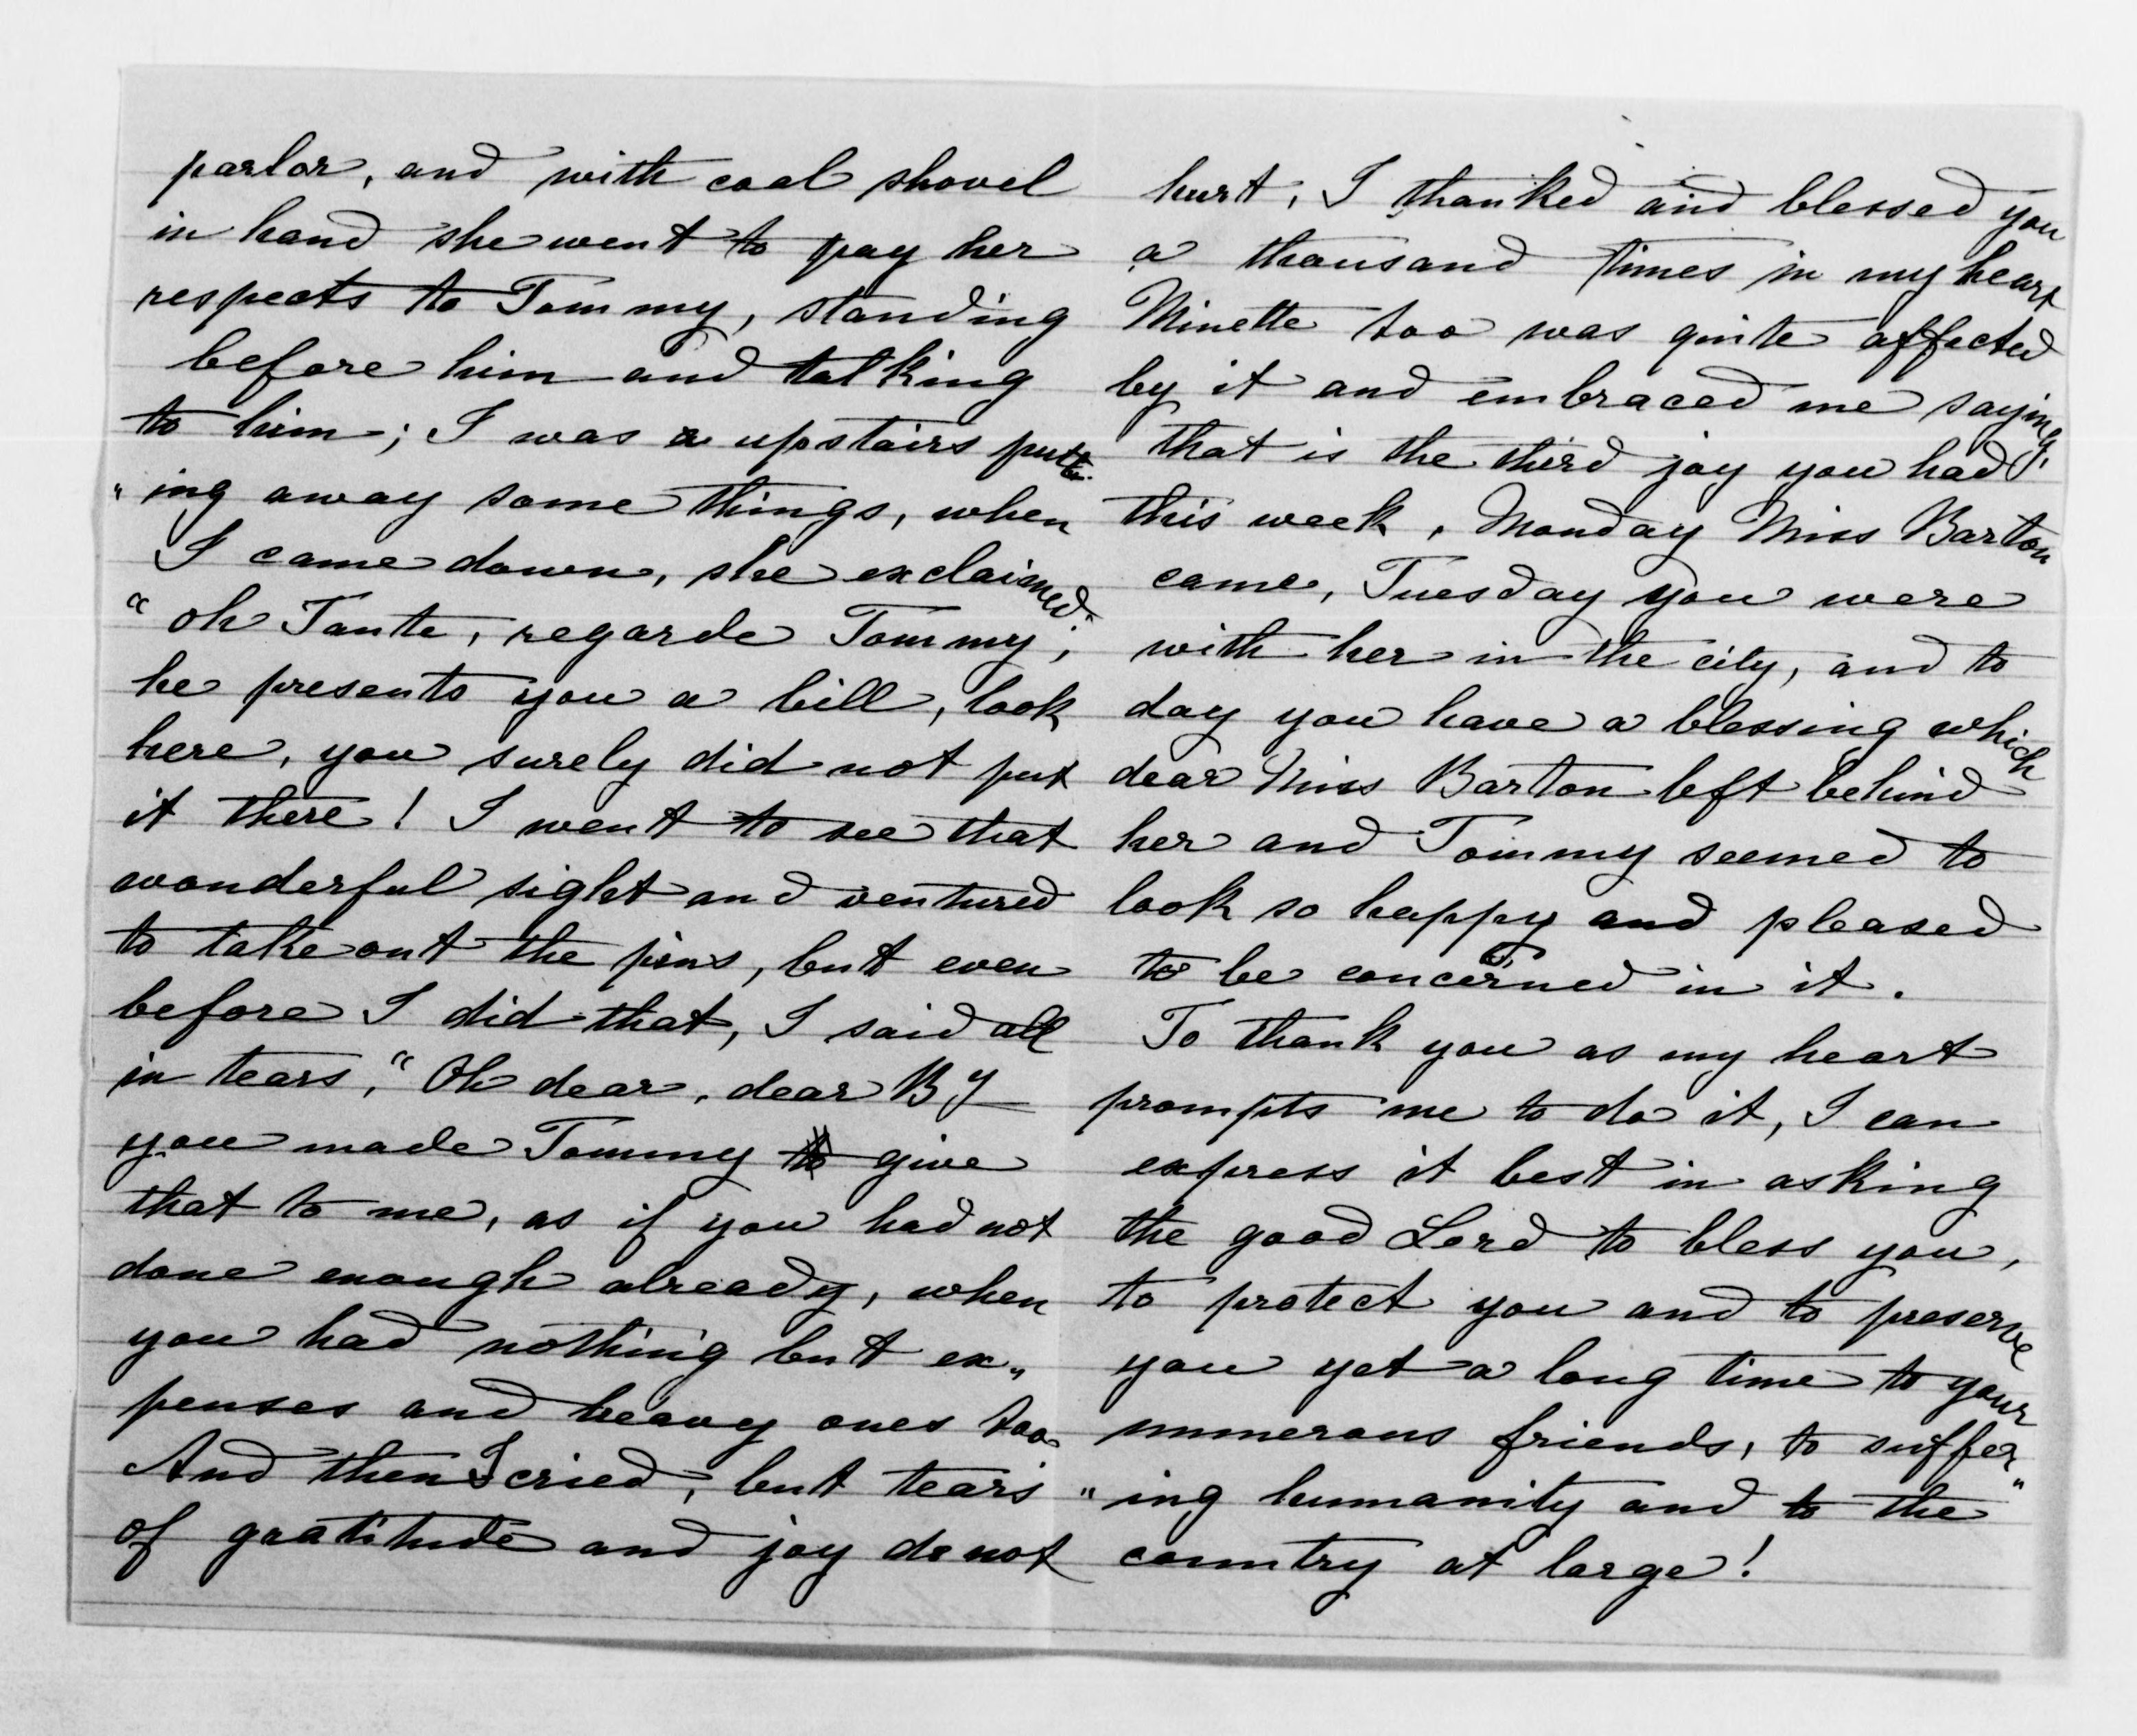 parlor, and with coal shovel
in hand she went to pay her
respects to Tommy, standing
before him and talking
to him; I was a upstairs putt-
"ing away some things, when
I came down, she exclaimed
"oh Tante, regarde Tommy;
he presents you a bill, look
here, you surely did not put
it there! I went to see that
wonderful sight and ventured
to take out the pins, but even
before I did that, I said all
in tears, "Oh dear, dear B y
you made Tommy to give
that to me, as if you had not
done enough already, when
you had nothing but ex„
penses and heavy ones too
And then I cried, but tears
of gratitude and joy do not
hurt, I thanked and blessed you
a thousand times in my heart
Minette too was quite affected
by it and embraced me saying:
that is the third joy you had
this week, Monday Miss Barton
came, Tuesday you were
with her in the city, and to
day you have a blessing which
dear Miss Barton left behind
her and Tommy seemed to
look so happy and pleased
to be concerned in it.
To thank you as my heart
prompts me to do it, I can
express it best in asking
the good Lord to bless you,
to protect you and to preserve
you yet a long time to your
numerous friends, to suffer„
"ing humanity and to the
country at large!